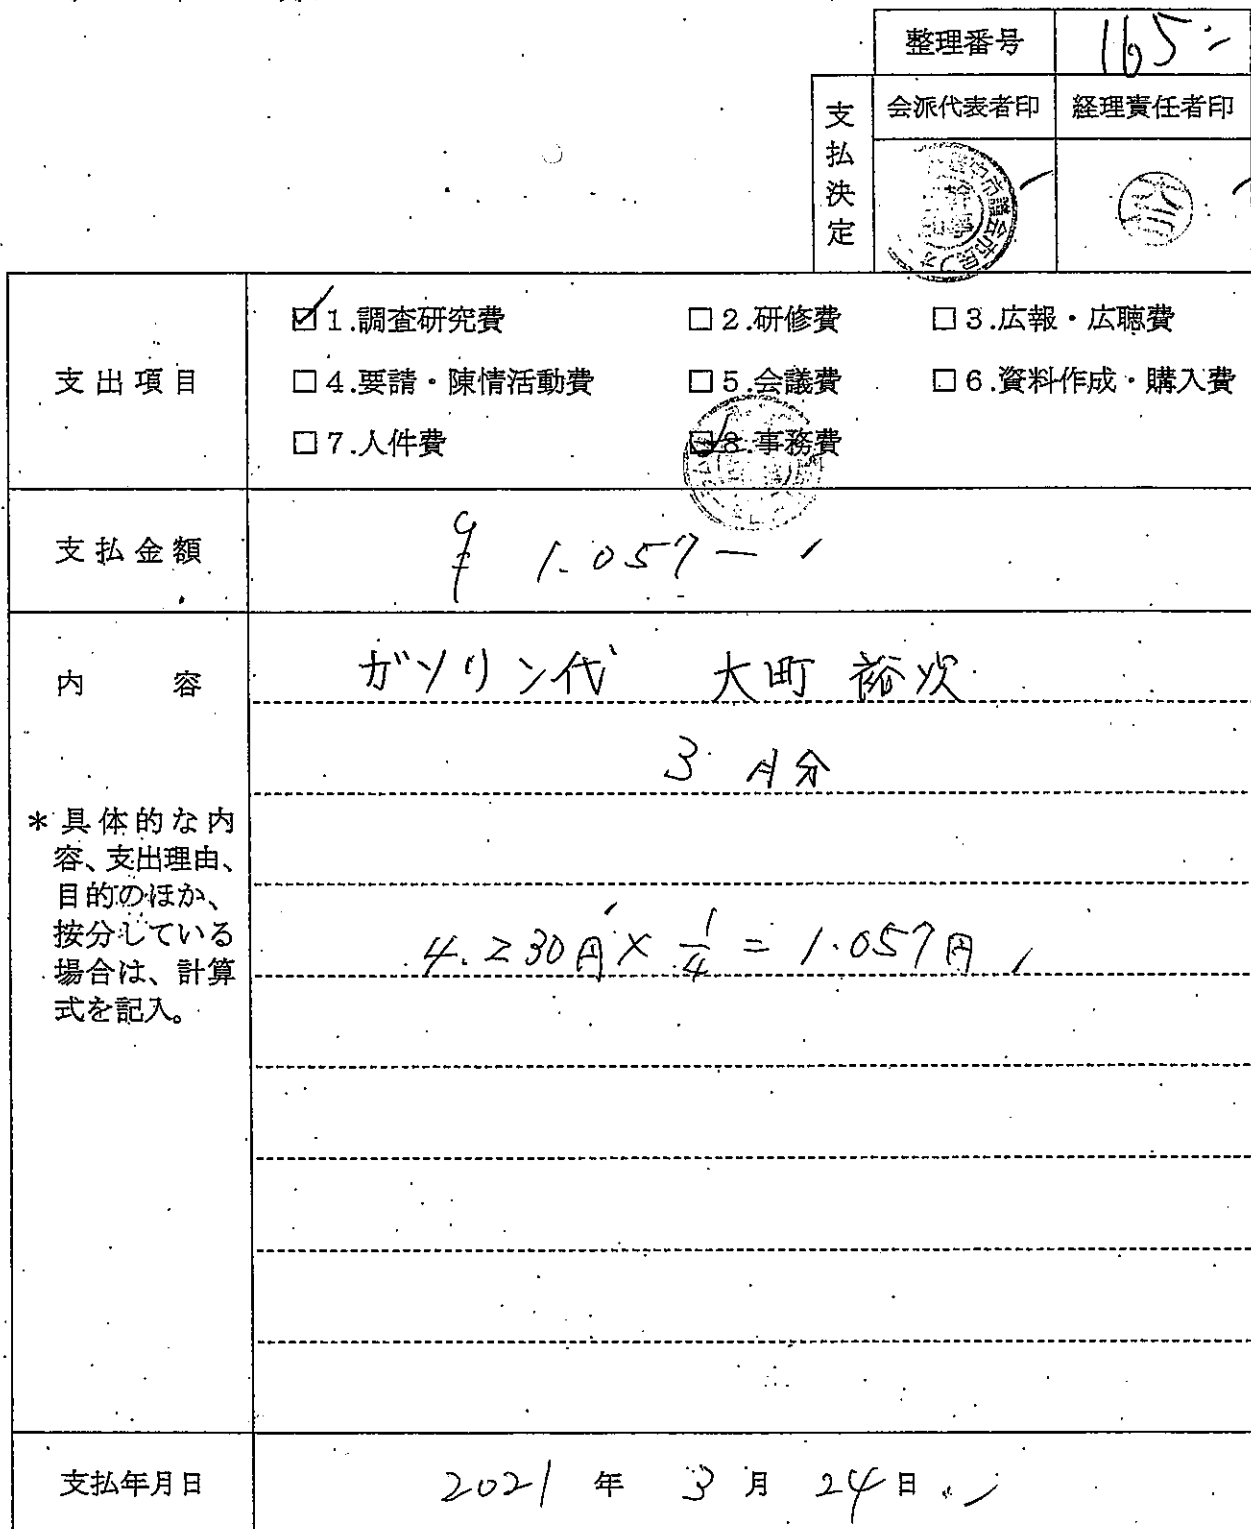 整理番号 165
支払決定
会派代表者印 経理責任者印
支出項目
☑1.調査研究費 □2.研修費 □3.広報・広聴費
□4.要請・陳情活動費 □5.会議費 □6.資料作成・購入費
□7.人件費 ☑8.事務費
支払金額 ¥ 1.057―
内容 ガソリン代 大町 裕次
3月分
*具体的な内
容、支出理由、
目的のほか、
按分している
場合は、計算
式を記入。
4.230円×1/4=1.057円
支払年月日 2021年3月24日